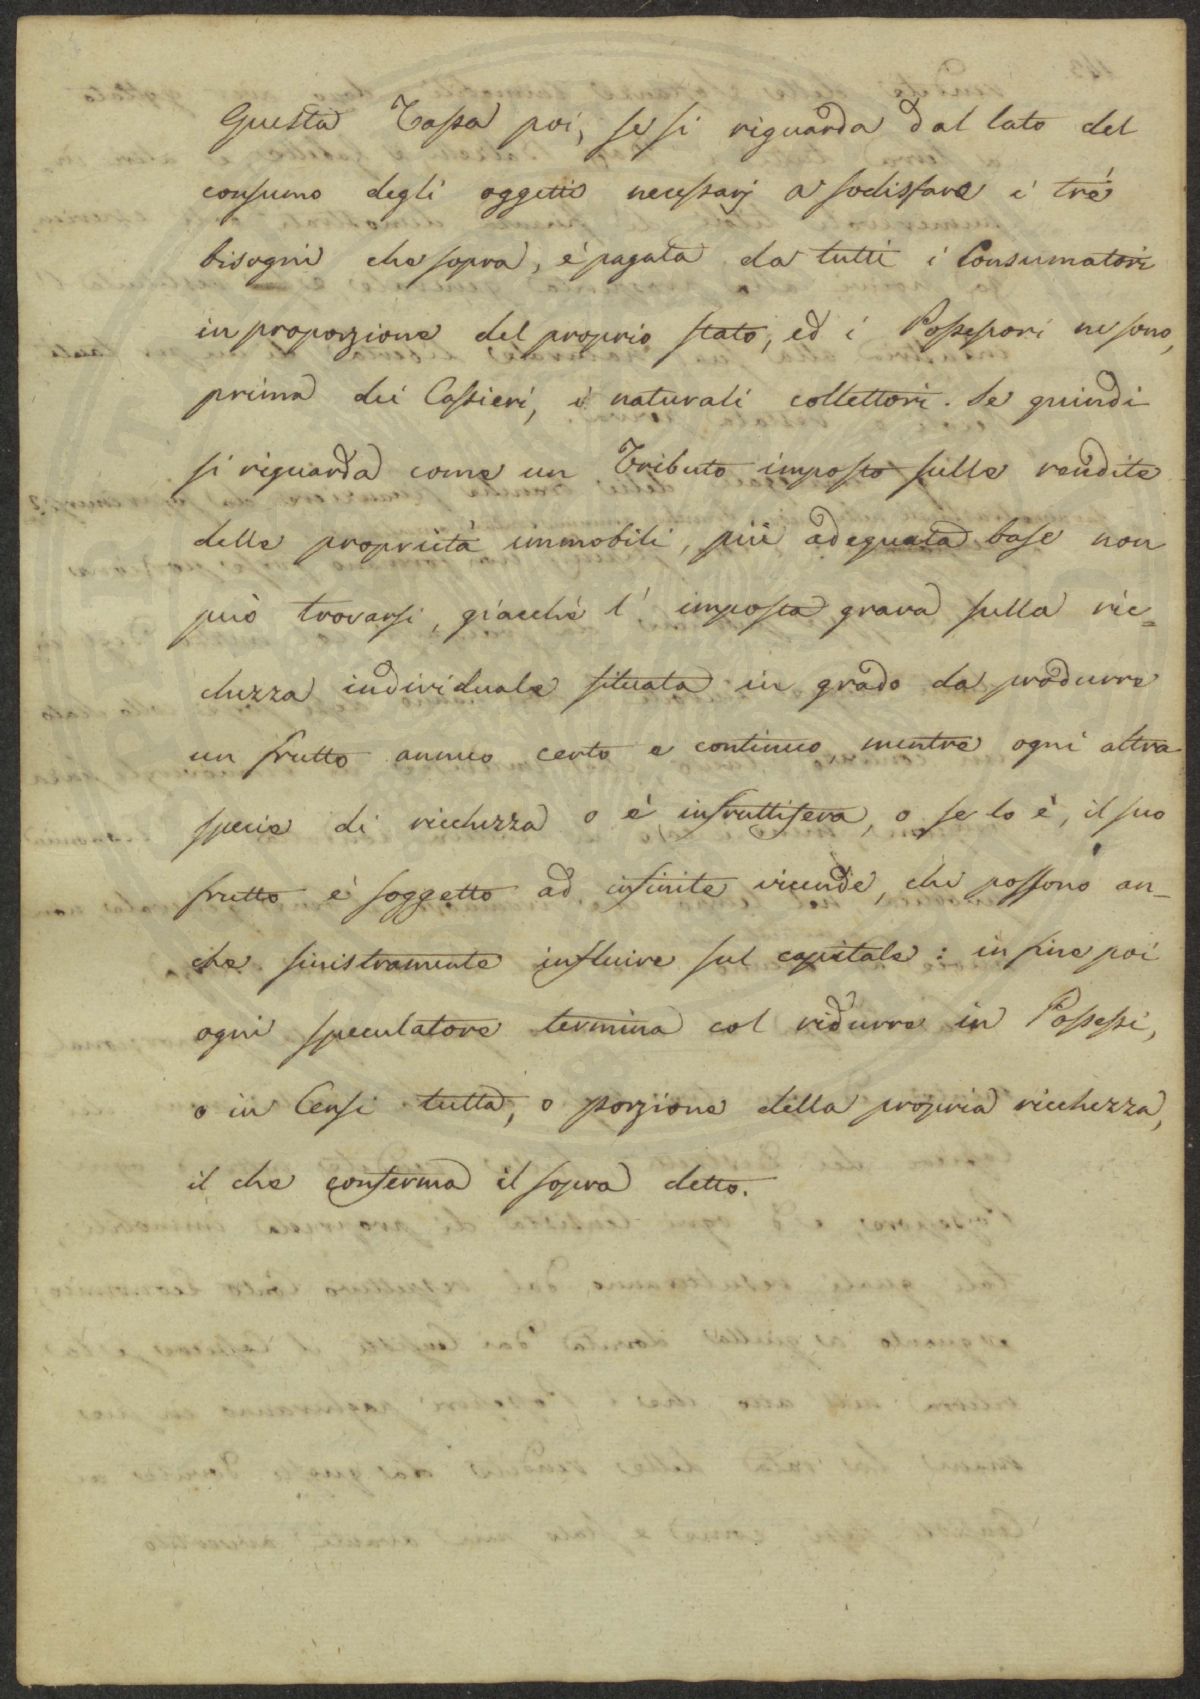 Questa Tassa poi, se si riguarda dal lato del
consumo degli oggetti necessarj a sodisfare i tré
bisogni che sopra, è pagata da tutti i Consumatori
in proporzione del proprio stato, ed i Possessori ne sono,
prima dei Cassieri, i naturali collettori. Se quindi
si riguarda come un Tributo imposto sulle rendite
delle proprietà immobili, più adeguata base non
può trovarsi, giacché l' imposta grava sulla ric=
chezza individuale situata in grado da produrre
un frutto annuo certo e continuo mentre ogni altra
specie di ricchezza o è infruttifera, o se lo è, il suo
frutto è soggetto ad infinite vicende, che possono an_
che sinistramente influire sul capitale: in fine poi
ogni speculatore termina col ridurre in Possessi,
o in Censi tutta, o porzione della propria ricchezza,
il che conferma il sopra detto.